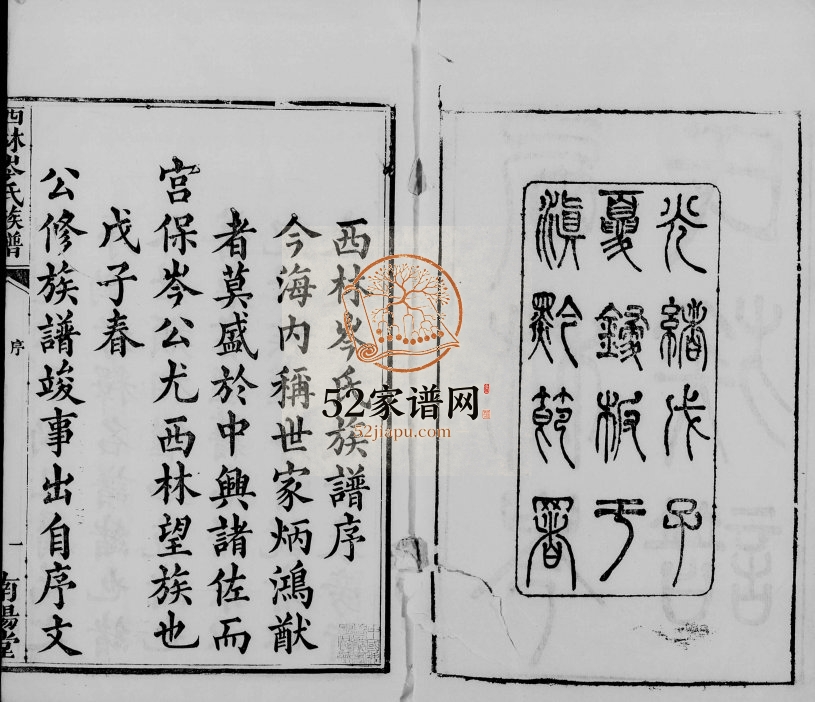 光緒戊子
夏鋟板于
滇黔節署
西林岑氏族譜序
今海內稱世家炳鴻猷
者莫盛於中興諸佐而
宮保岑公尤西林望族也
戊子春
公修族譜竣事出自序文
西林岑氏族譜
序
一
南陽堂
52家谱网
52jiapu.com